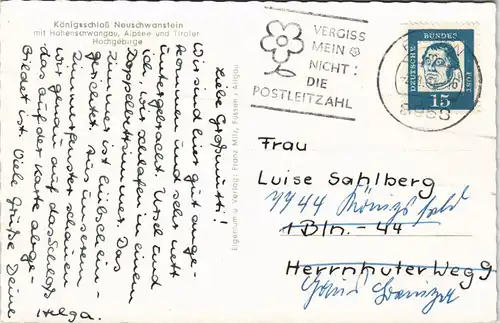 Königsschloß Neuschwanstein
mit Hohenschwangau, Alpsee und Tiroler
Hochgebirge
Liebe Großmutti!
Wir sind hier gut ange-
kommen und sehr nett
untergebracht. Ursel und
ich, wir schlafen in einem
Doppelbettzimmer. Das
Zimmer ist hübsch ein-
gerichtet. Aus unserem
Zimmerfenster schauen
wir genau auf das Schloß
das auf der Karte abge-
bildet ist. Viele Grüße Deine
Helga.
Eigentum u. Verlag: Franz Milz, Füssen i. Allgäu
VERGISS
MEIN
NICHT:
DIE
POSTLEITZAHL
8958
DEUTSCHE
BUNDES
POST
15
Frau
Luise Sahlberg
7744 Königsfeld
1 Bln.- 44
Herrnhuter Weg 9
Haus